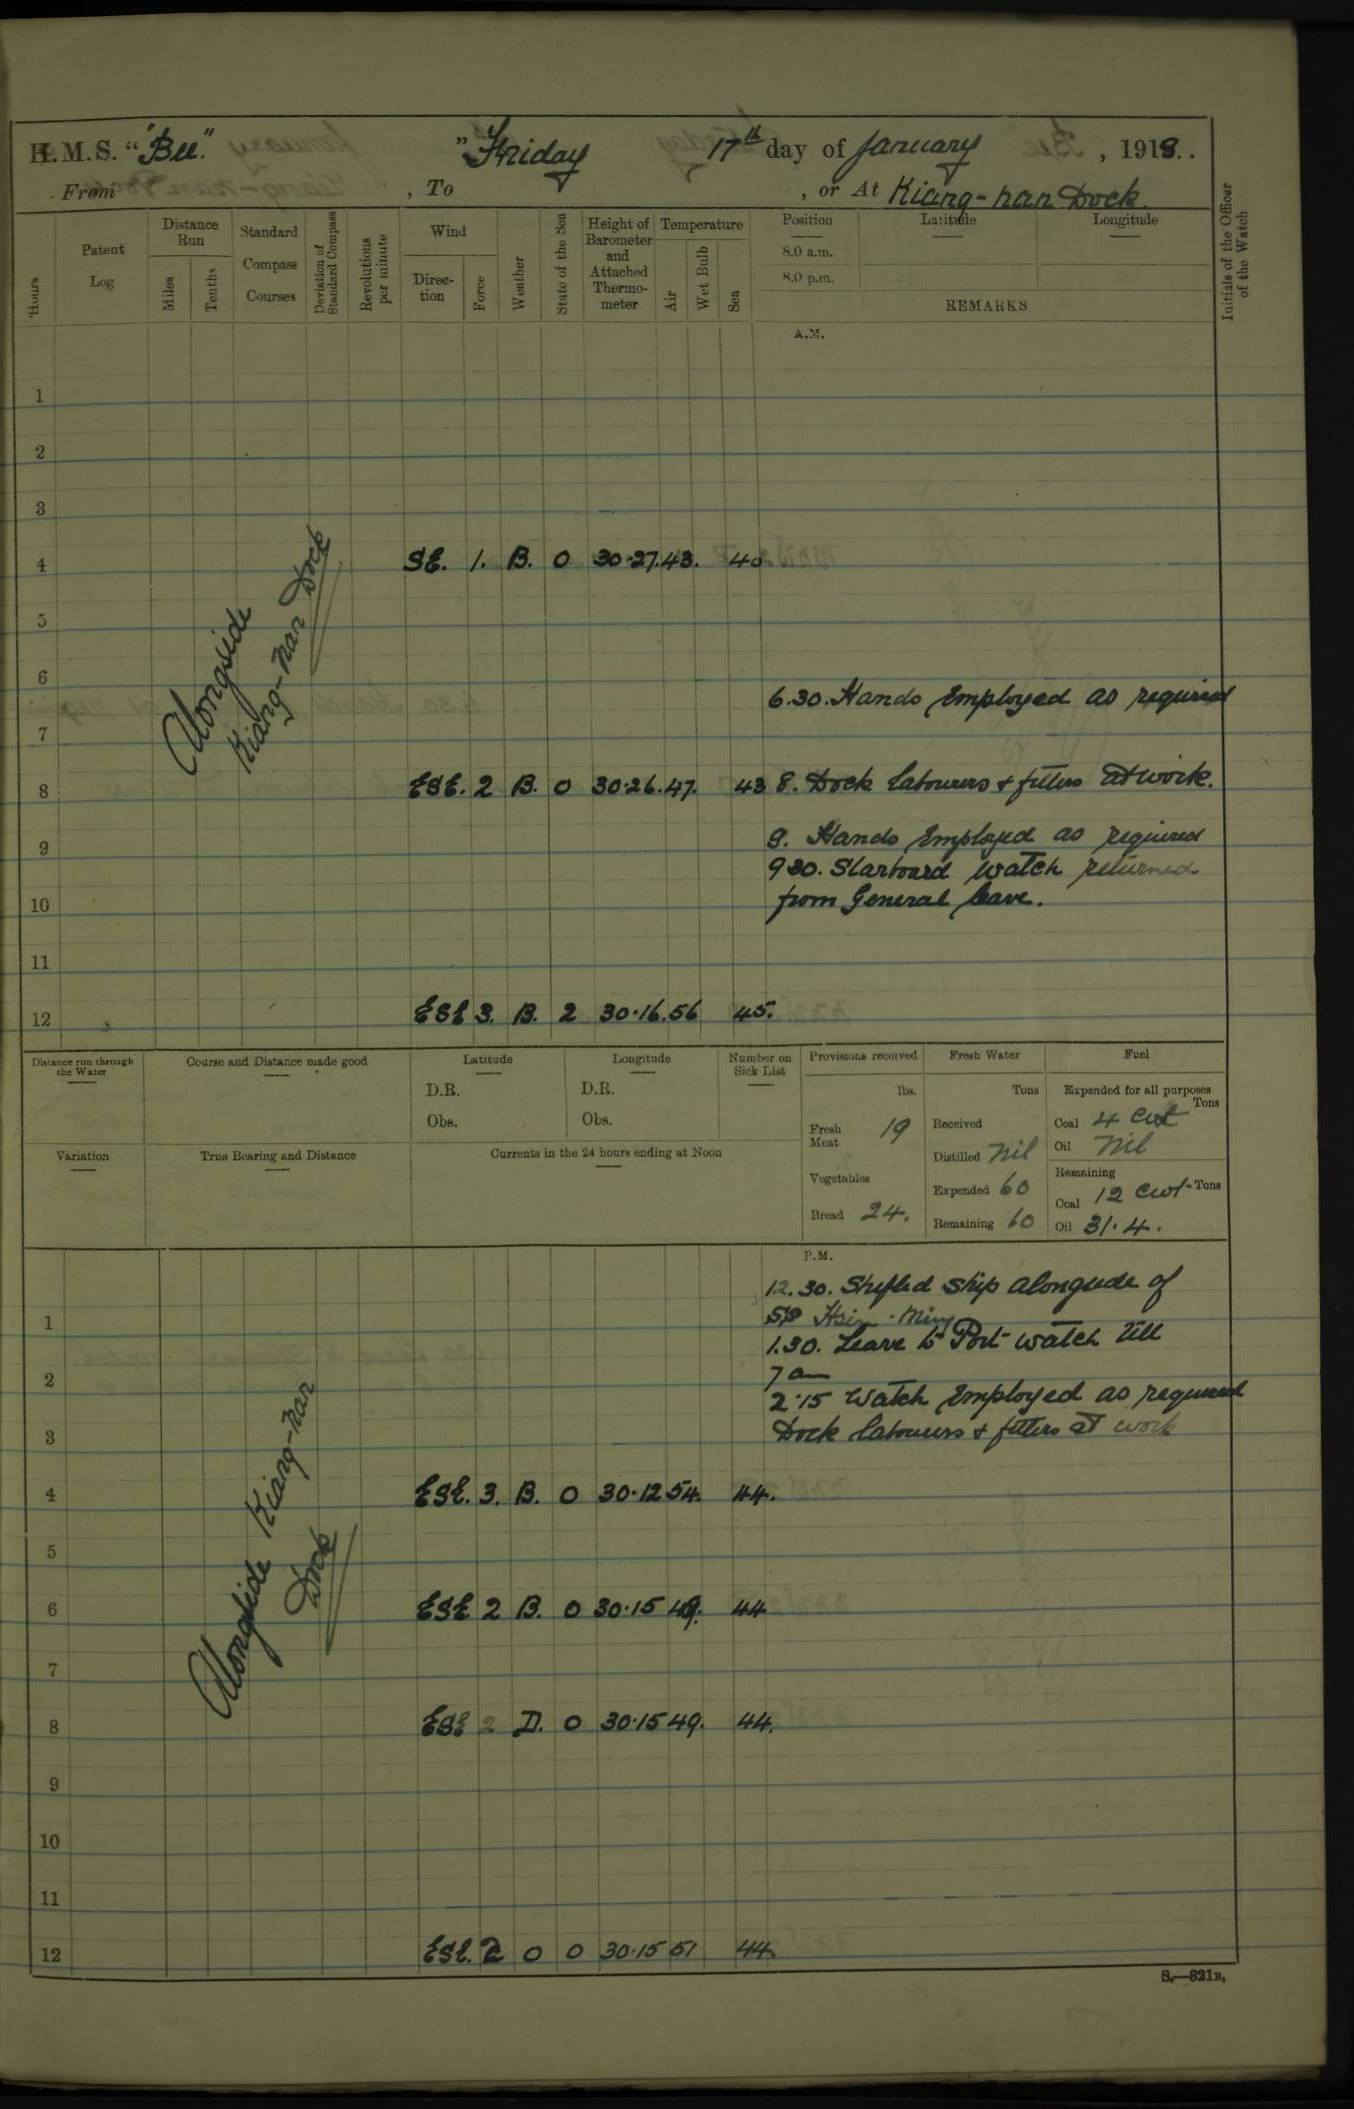 H.M.S. "Bee." " Friday 17th day of January, 1919.
From , To , or At Kiang-nan Dock.
Hours
Patent Log
Distance Run
Miles
Tenths
Standard Compass Courses
Deviation of Standard Compass
Revolutions per minute
Wind
Direction
Force
Weather
State of the Sea
Height of Barometer and Attached Thermometer
Temperature
Air
Wet Bulb
Sea
Position
8.0 a.m.
8.0 p.m.
Latitude
Longitude
REMARKS
Initials of the Officer of the Watch
A.M.
1
2
3
4 SE. 1. B. 0 30.27. 43. 40
5
Alongside
Kiang-nan Dock
6
6.30. Hands Employed as required
7
8 ESE. 2 B. 0 30.26. 47. 43 8. Dock labourers & fitters at work.
9. Hands Employed as required
9
9 30. Starboard watch returned
10 from General leave.
11
12 ESE 3. B. 2 30.16. 56 45.
Distance run through the Water
Course and Distance made good
Latitude
D.R.
Obs.
Longitude
D.R.
Obs.
Number on Sick List
Provisions received
lbs.
Fresh Meat 19
Vegetables
Bread 24.
Fresh Water
Tons
Received
Distilled Nil
Expended 60
Remaining 60
Fuel
Expended for all purposes
Tons
Coal 4 cwt
Oil Nil
Remaining
Coal 12 cwt Tons
Oil 31.4.
Variation
True Bearing and Distance
Currents in the 24 hours ending at Noon
P.M.
12.30. Shifted ship alongside of
1 SS Hsin-Ming
1.30. Leave to Port watch till
2 7 am
2.15 Watch Employed as required
3 Dock labourers & fitters at work
4 ESE. 3. B. 0 30.12 54. 44.
5
Alongside Kiang-nan
Dock
6 ESE 2 B. 0 30.15 49. 44
7
8 ESE 2 D. 0 30.15 49. 44.
9
10
11
12 ESE. 2 0 0 30.15 51 44.
S.—321B.